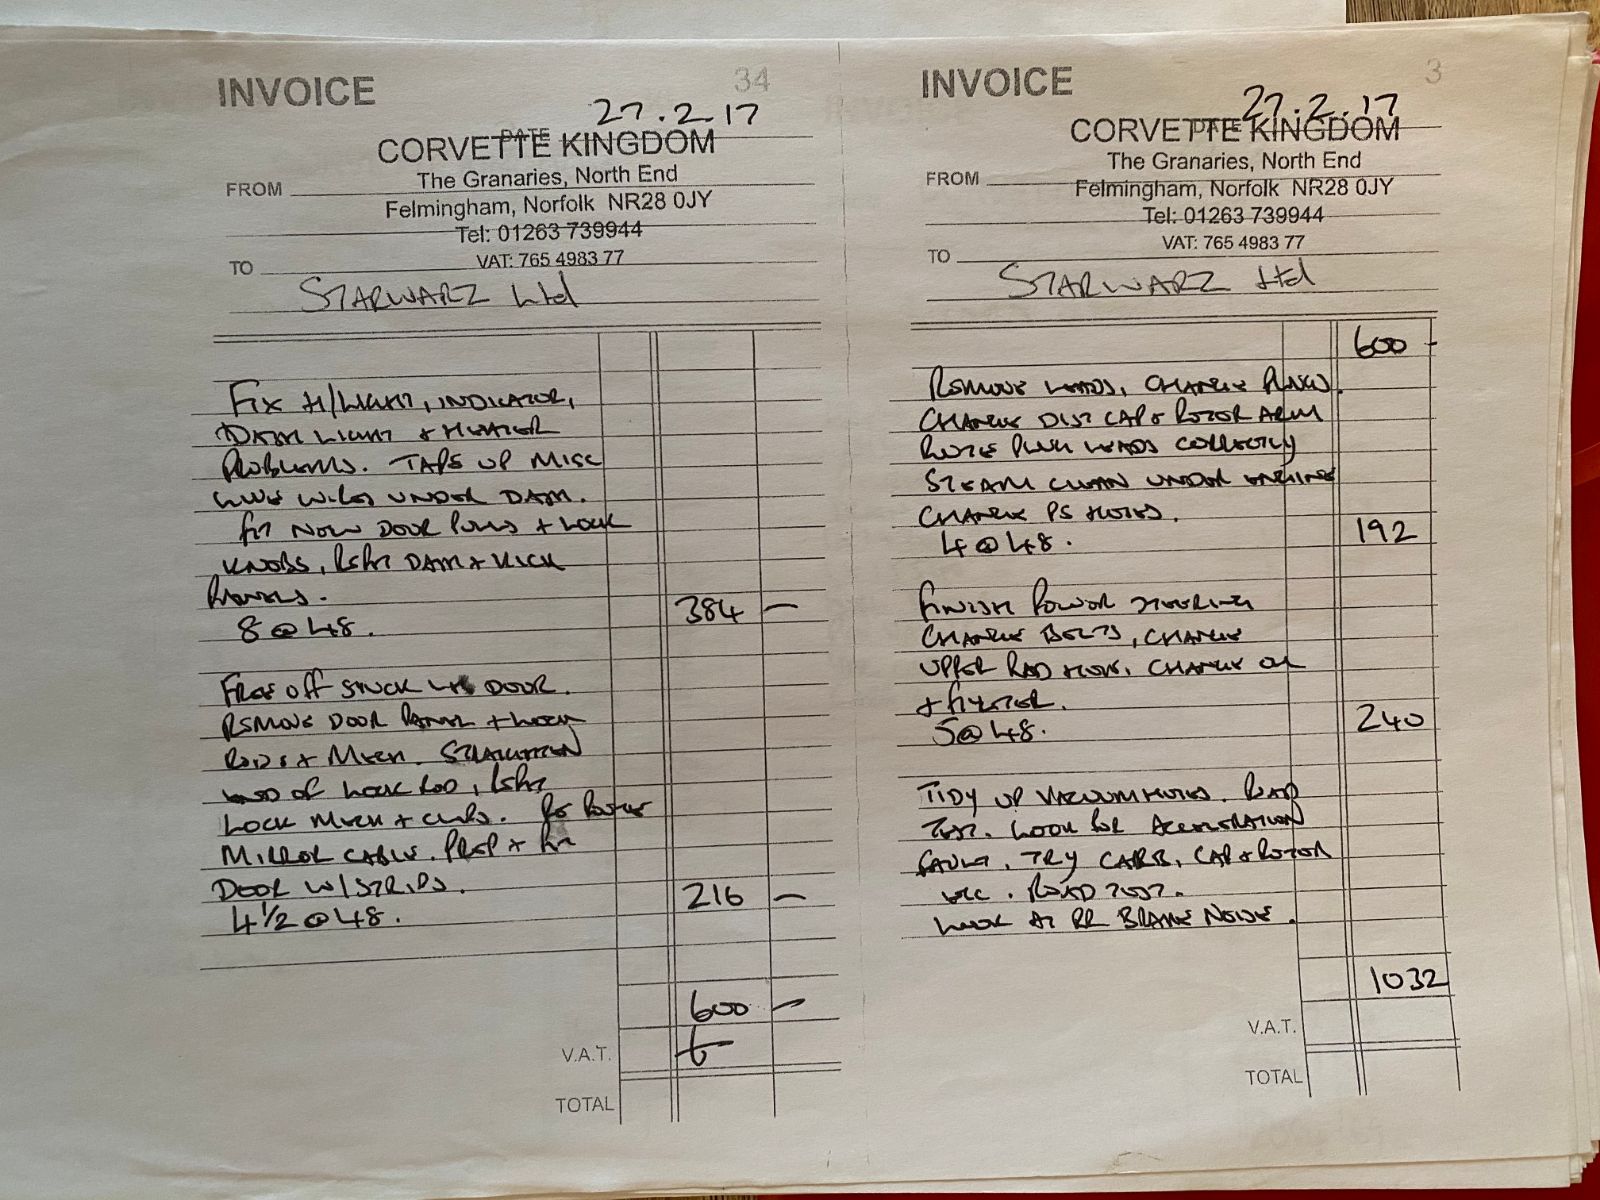 INVOICE
34
27.2.17
DATE
CORVETTE KINGDOM
The Granaries, North End
FROM
Felmingham, Norfolk NR28 0JY
Tel: 01263 739944
VAT: 765 4983 77
TO
STARWARZ Ltd
FIX H/LIGHT, INDICATOR,
DASH LIGHT & HEATER
PROBLEMS. TAPE UP MISC
LIVE WIRES UNDER DASH.
FIT NEW DOOR PULLS + LOCK
KNOBS, REFIT DASH & KICK
PANELS.
384 —
8 @ 48.
FREE OFF STUCK LH DOOR.
REMOVE DOOR PANEL + LOCK
RODS & MECH. STRAIGHTEN
END OF LOCK ROD, REFIT
LOCK MECH + CLIPS. RE ROUTE
MIRROR CABLE. PREP & FIT
DOOR W/STRIPS.
216 —
4 1/2 @ 48.
600 —
V.A.T.
TOTAL
INVOICE
3
27.2.17
DATE
CORVETTE KINGDOM
The Granaries, North End
FROM
Felmingham, Norfolk NR28 0JY
Tel: 01263 739944
VAT: 765 4983 77
TO
STARWARZ Ltd
600 -
REMOVE LEADS, CHANGE PLUGS.
CHANGE DIST CAP & ROTOR ARM
ROUTE PLUG LEADS CORRECTLY
STEAM CLEAN UNDER ENGINE
CHANGE PS HOSES.
192
4 @ 48.
FINISH POWER STEERING
CHANGE BELTS, CHANGE
UPPER RAD HOSE, CHANGE OIL
& FILTER.
240
5 @ 48.
TIDY UP VACUUM HOSES. ROAD
TEST. LOOK FOR ACCELERATION
FAULT, TRY CARB, CAP & ROTOR
ETC. ROAD TEST.
LOOK AT RR BRAKE NOISE.
1032
V.A.T.
TOTAL